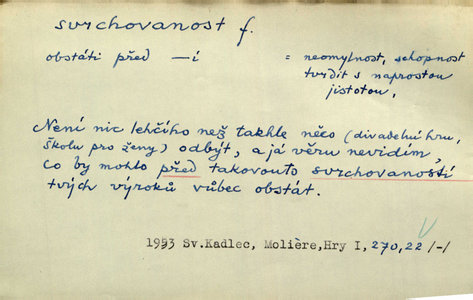 svrchovanost f.
obstáti před —í = neomylnost, schopnost
tvrdit s naprostou
jistotou,
Není nic lehčího než takhle něco (divadelní hru,
Školu pro ženy) odbýt, a já věru nevidím,
co by mohlo před takovouto svrchovaností
tvých výroků vůbec obstát.
1953 Sv.Kadlec, Molière,Hry I, 270,22 /-/